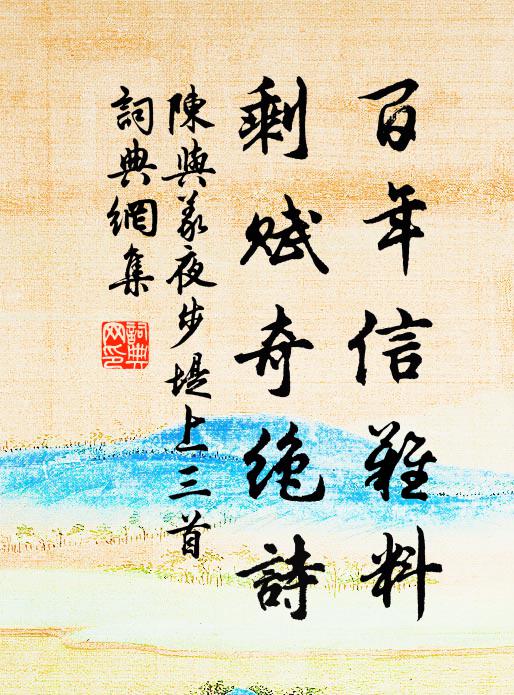 百年信難料
剩赋奇絶詩
陳與義夜步堤上三首
詞典網集
詞典
网印